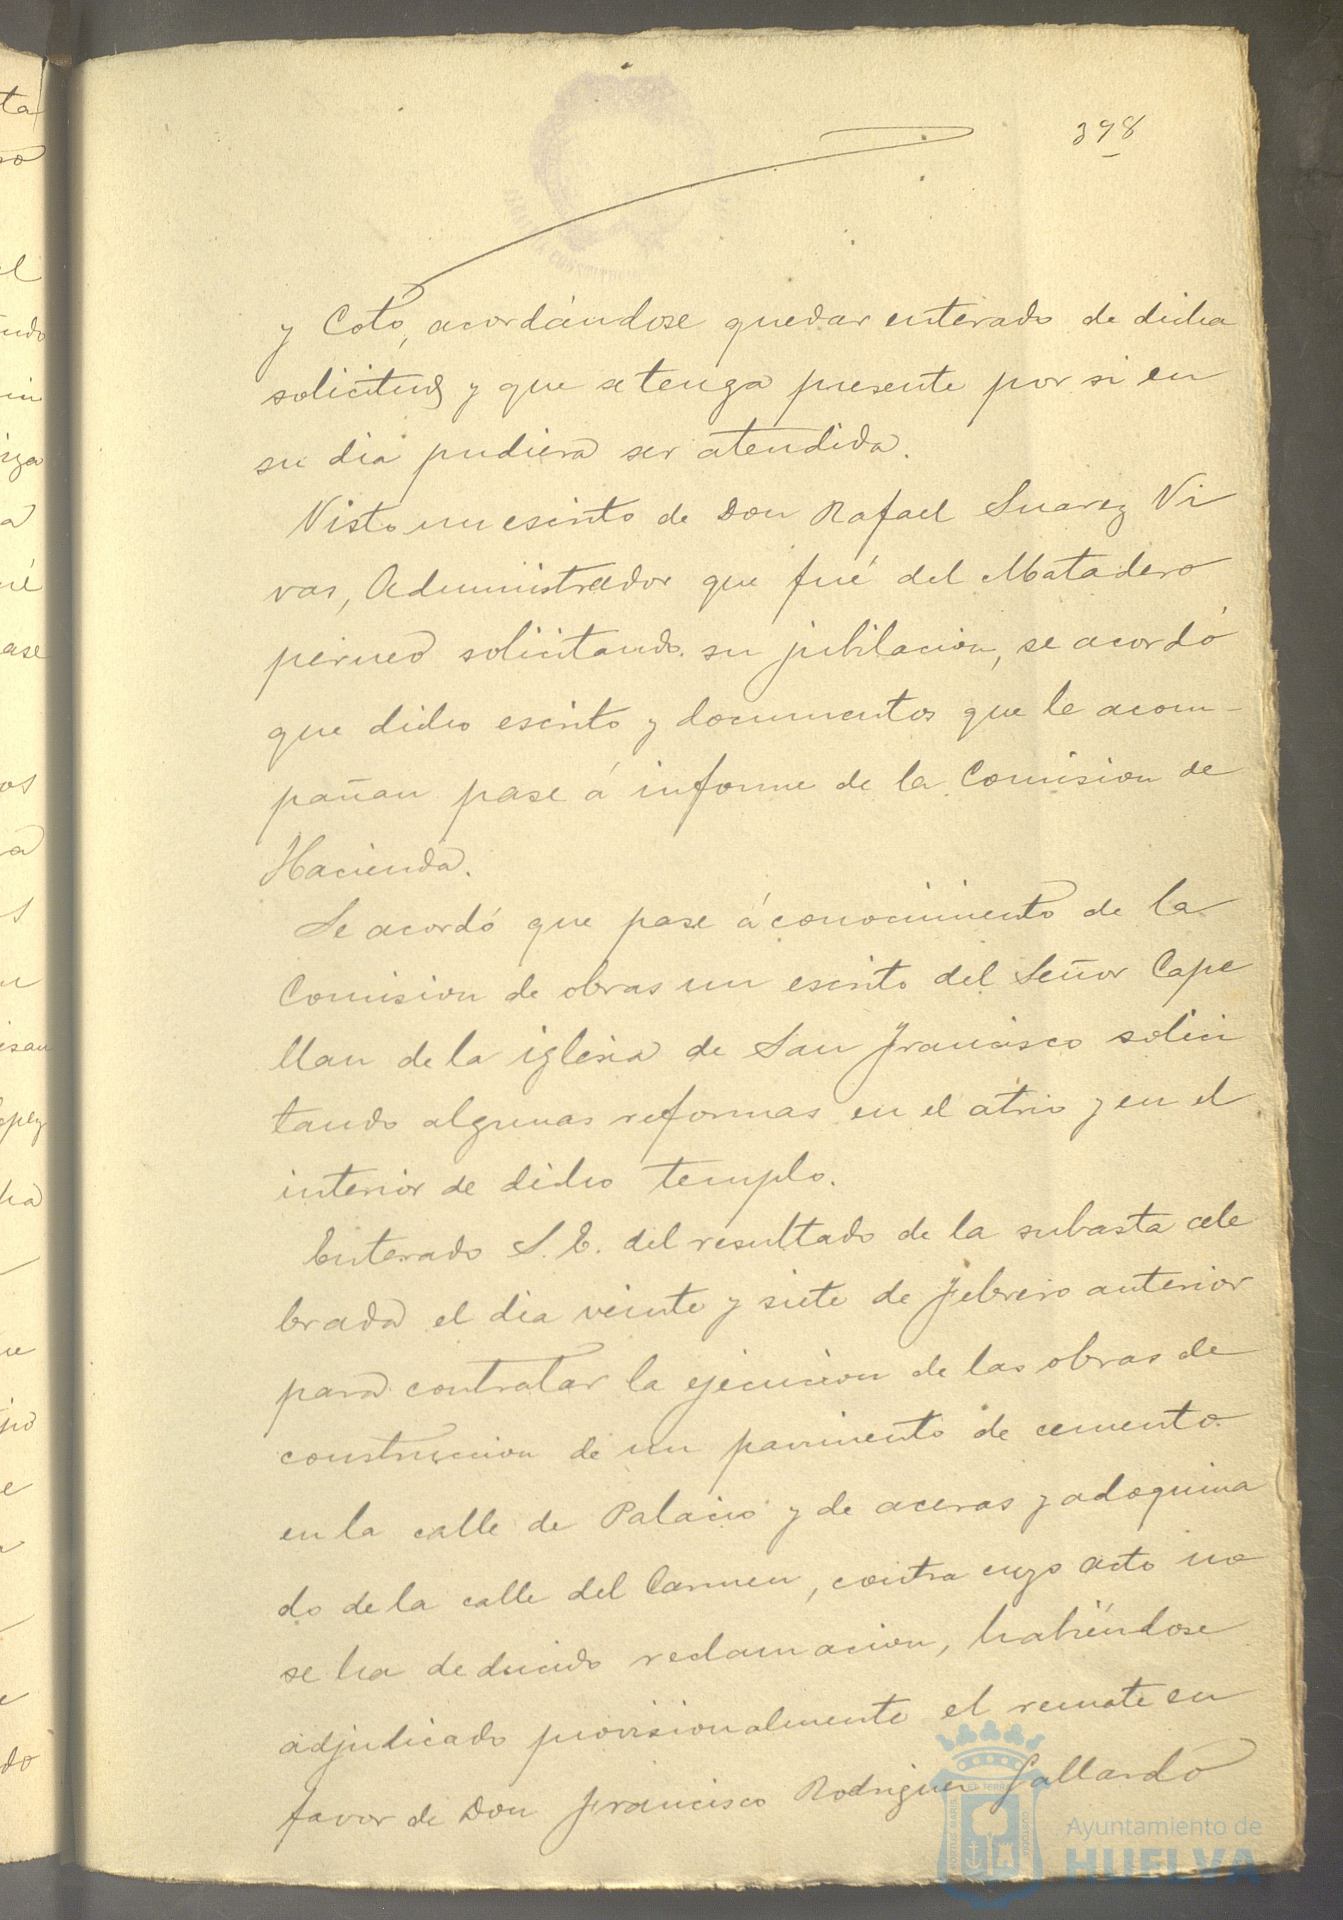 398
y Coto, acordándose quedar enterado de dicha
solicitud y que se tenga presente por si en
su dia pudiera ser atendida.
Visto un escrito de Don Rafael Suarez Vi
vas, Administrador que fué del Matadero
perneo solicitando su jubilacion, se acordó
que dicho escrito y documentos que le acom-
pañan pase á informe de la Comision de
Hacienda.
Se acordó que pase á conocimiento de la
Comision de obras un escrito del Señor Cape
llan de la iglesia de San Francisco solici
tando algunas reformas en el atrio y en el
interior de dicho templo.
Enterado S. E. del resultado de la subasta cele
brada el dia veinte y siete de Febrero anterior
para contratar la ejecucion de las obras de
construccion de un pavimento de cemento
en la calle de Palacio y de aceras y adoquina
do de la calle del Carmen, contra cuyo acto no
se ha deducido reclamacion, habiéndose
adjudicado provisionalmente el remate en
favor de Don Francisco Rodriguez Gallardo
Ayuntamiento de
HUELVA